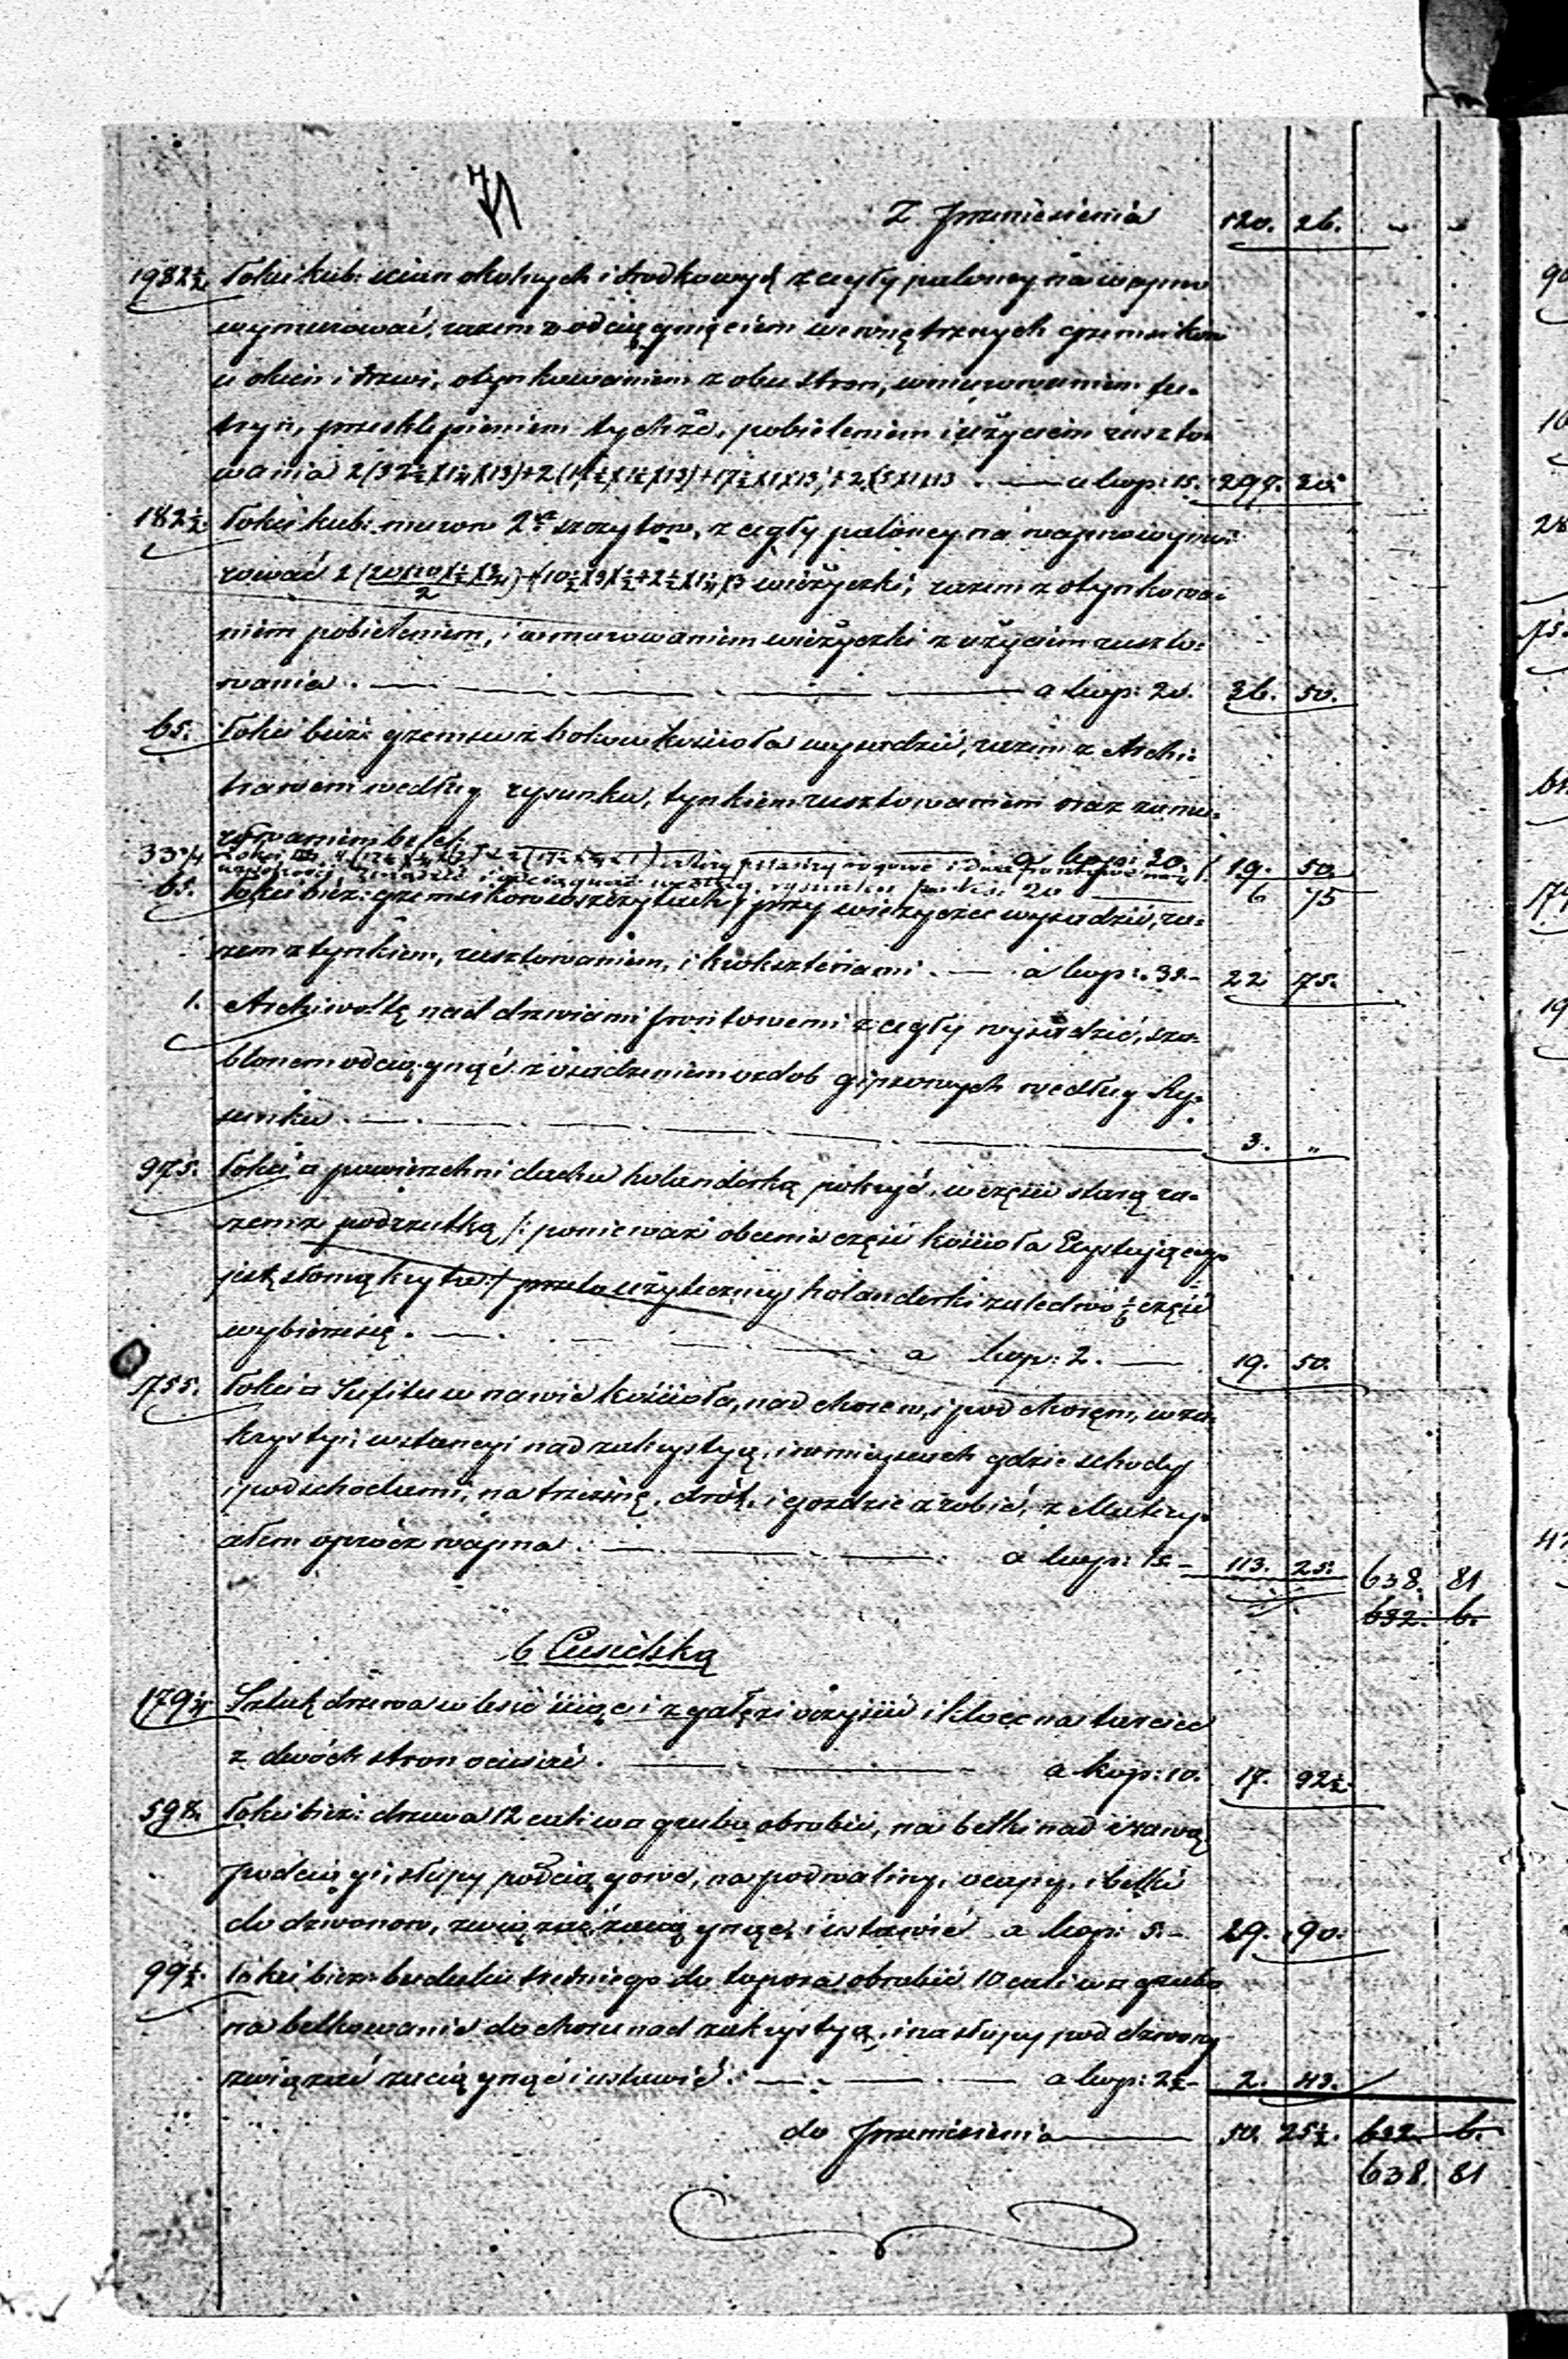 71
Z Przeniesienia 120. 26. " "
1982½ Łokci kub: ścian okolnych i środkowych z cegły paloney na wapno
wymurować, razem z odciągnięciem wewnętrznych gzemsików
u okien i drzwi, otynkowaniem z obu stron, wmurowaniem fu-
tryn, przesklepieniem tychże, pobieleniem i użyciem ruszto-
wania a kop: 15. 297.
182½ Łokci kub: murow 2ch szczytow, z cegły paloney na wapno wymu-
rować 2 wieżyczki; razem z otynkowa-
niem pobieleniem, i wmurowaniem wieżyczki z użyciem ruszto-
wania. a kop: 20. 36. 50.
65. Łokci bież: gzemsu z boków kościoła wysadzić, razem z Archi-
trawem według rysunku, tynkiem rusztowaniem oraz zamu-
rowaniem belek a kop: 30. 19. 50.
33¾ Łokci cztery pilastry rogowe i dwa frontowe
i obciągnąć według rysunku po kop. 20 6 75
65. Łokci bież: gzemsików w szczytach, i przy wieżyczce wysadzić, ra-
zem z tynkiem, rusztowaniem, i kroksztenami. a kop: 35. 22 75.
1. Archiwoltę nad drzwiami frontowemi z cegły wysadzić, sza-
blonem odciągnąć z osadzeniem ozdob gipsowych według Ry-
sunku. 3. "
975. Łokci □ powierzchni dachu holanderką pokryć, w części starą ra-
zem z podrzutką /: ponieważ obecnie część kościoła Exystującego
jest słomą kryta :/ przeto użyteczney holanderki zaledwo ⅙ część
wybierze się. a kop: 2. 19. 50.
1755. Łokci □ Sufitu w nawie kościoła, nad chorem, i pod chorem, w za-
krystyi, w stancyi nad zakrystyą, i w mieyscach gdzie schody
i pod schodami, na trzcinę, drót, i gozdzie zrobić, z Matery-
ałem oprócz wapna. a kop: 15 113. 25. 638. 81
632. 6.
6 Ciesielską
179¼ Sztuk drzewa w lesie ściąć i z gałęzi oczyścić i kloce na tarcice
z dwóch stron ociosać. a kop: 10. 17. 92½
598. Łokci bież: drzewa 12 cali w □ grubo obrobić, na belki nad nawą
podciągi, słupy podciągowe, na podwaliny, oczapy, i belki
do dzwonow, związać, zaciągnąć, i ustawić a kop: 5. 29. 90.
99½. Łokci bież: budulcu średniego do topora obrobić 10 cali w □ grubo
na belkowanie do choru nad zakrystyą, i na słupy pod dzwony
związać zaciągnąć i ustawić. a kop: 2½ 2. 43.
do Przeniesienia 50. 25½. 632. 6.
638. 81